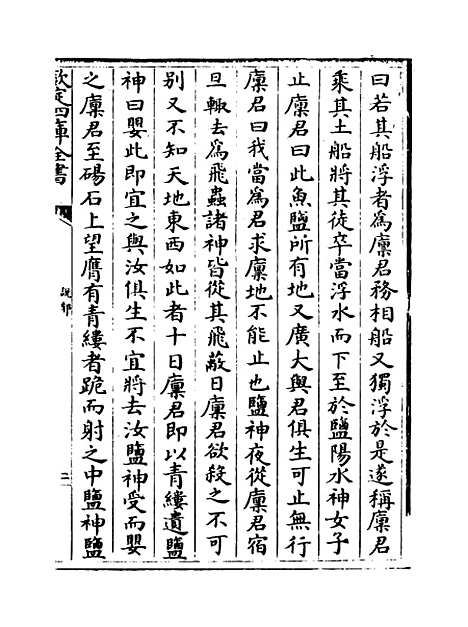 曰若其船浮者為廪君務相船又獨浮於是遂稱廪君
乘其土船將其徒卒當浮水而下至於鹽陽水神女子
止廪君曰此魚鹽所有地又廣大與君俱生可止無行
廪君曰我當為君求廪地不能止也鹽神夜從廪君宿
旦輙去為飛蟲諸神皆從其飛蔽日廪君欲殺之不可
别又不知天地東西如此者十日廪君即以青縷遺鹽
神曰嬰此即宜之與汝俱生不宜將去汝鹽神受而嬰
之廪君至碭石上望膺有青縷者跪而射之中鹽神鹽
欽定四庫全書
說郛
二